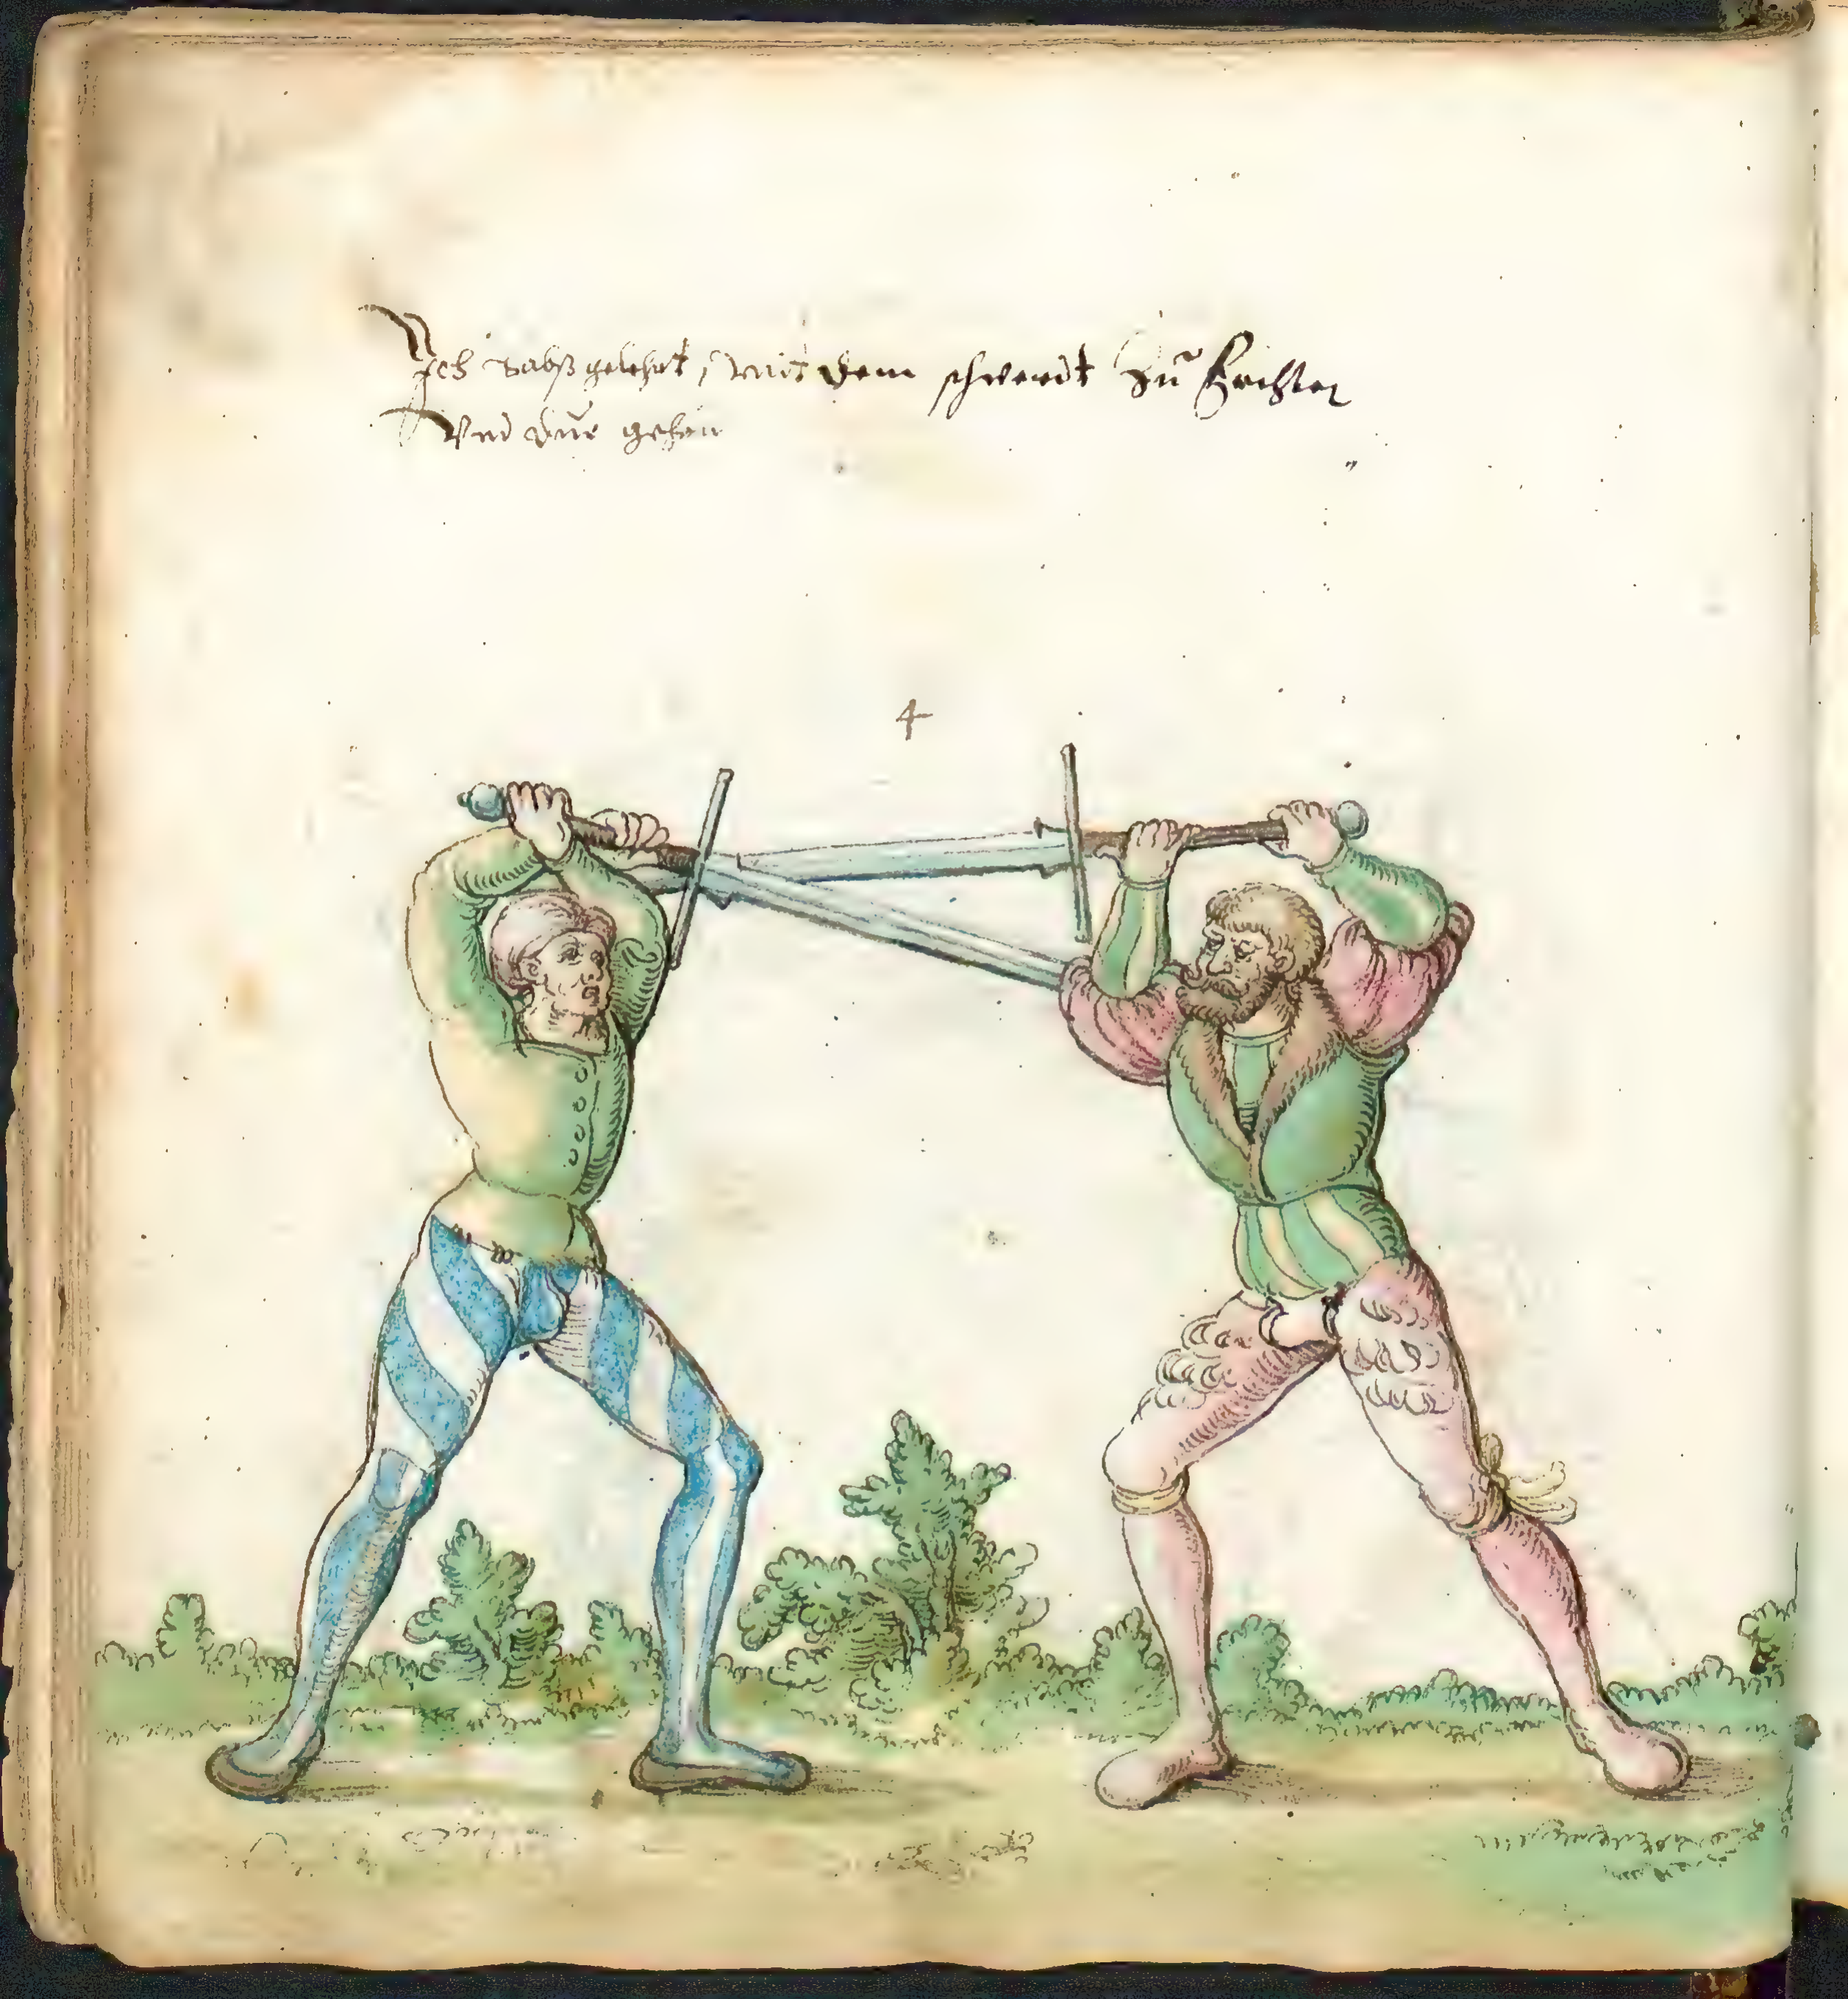 Ich habs gelehrt, mit dem schwerdt zu Fechten
Vnd gehen
4